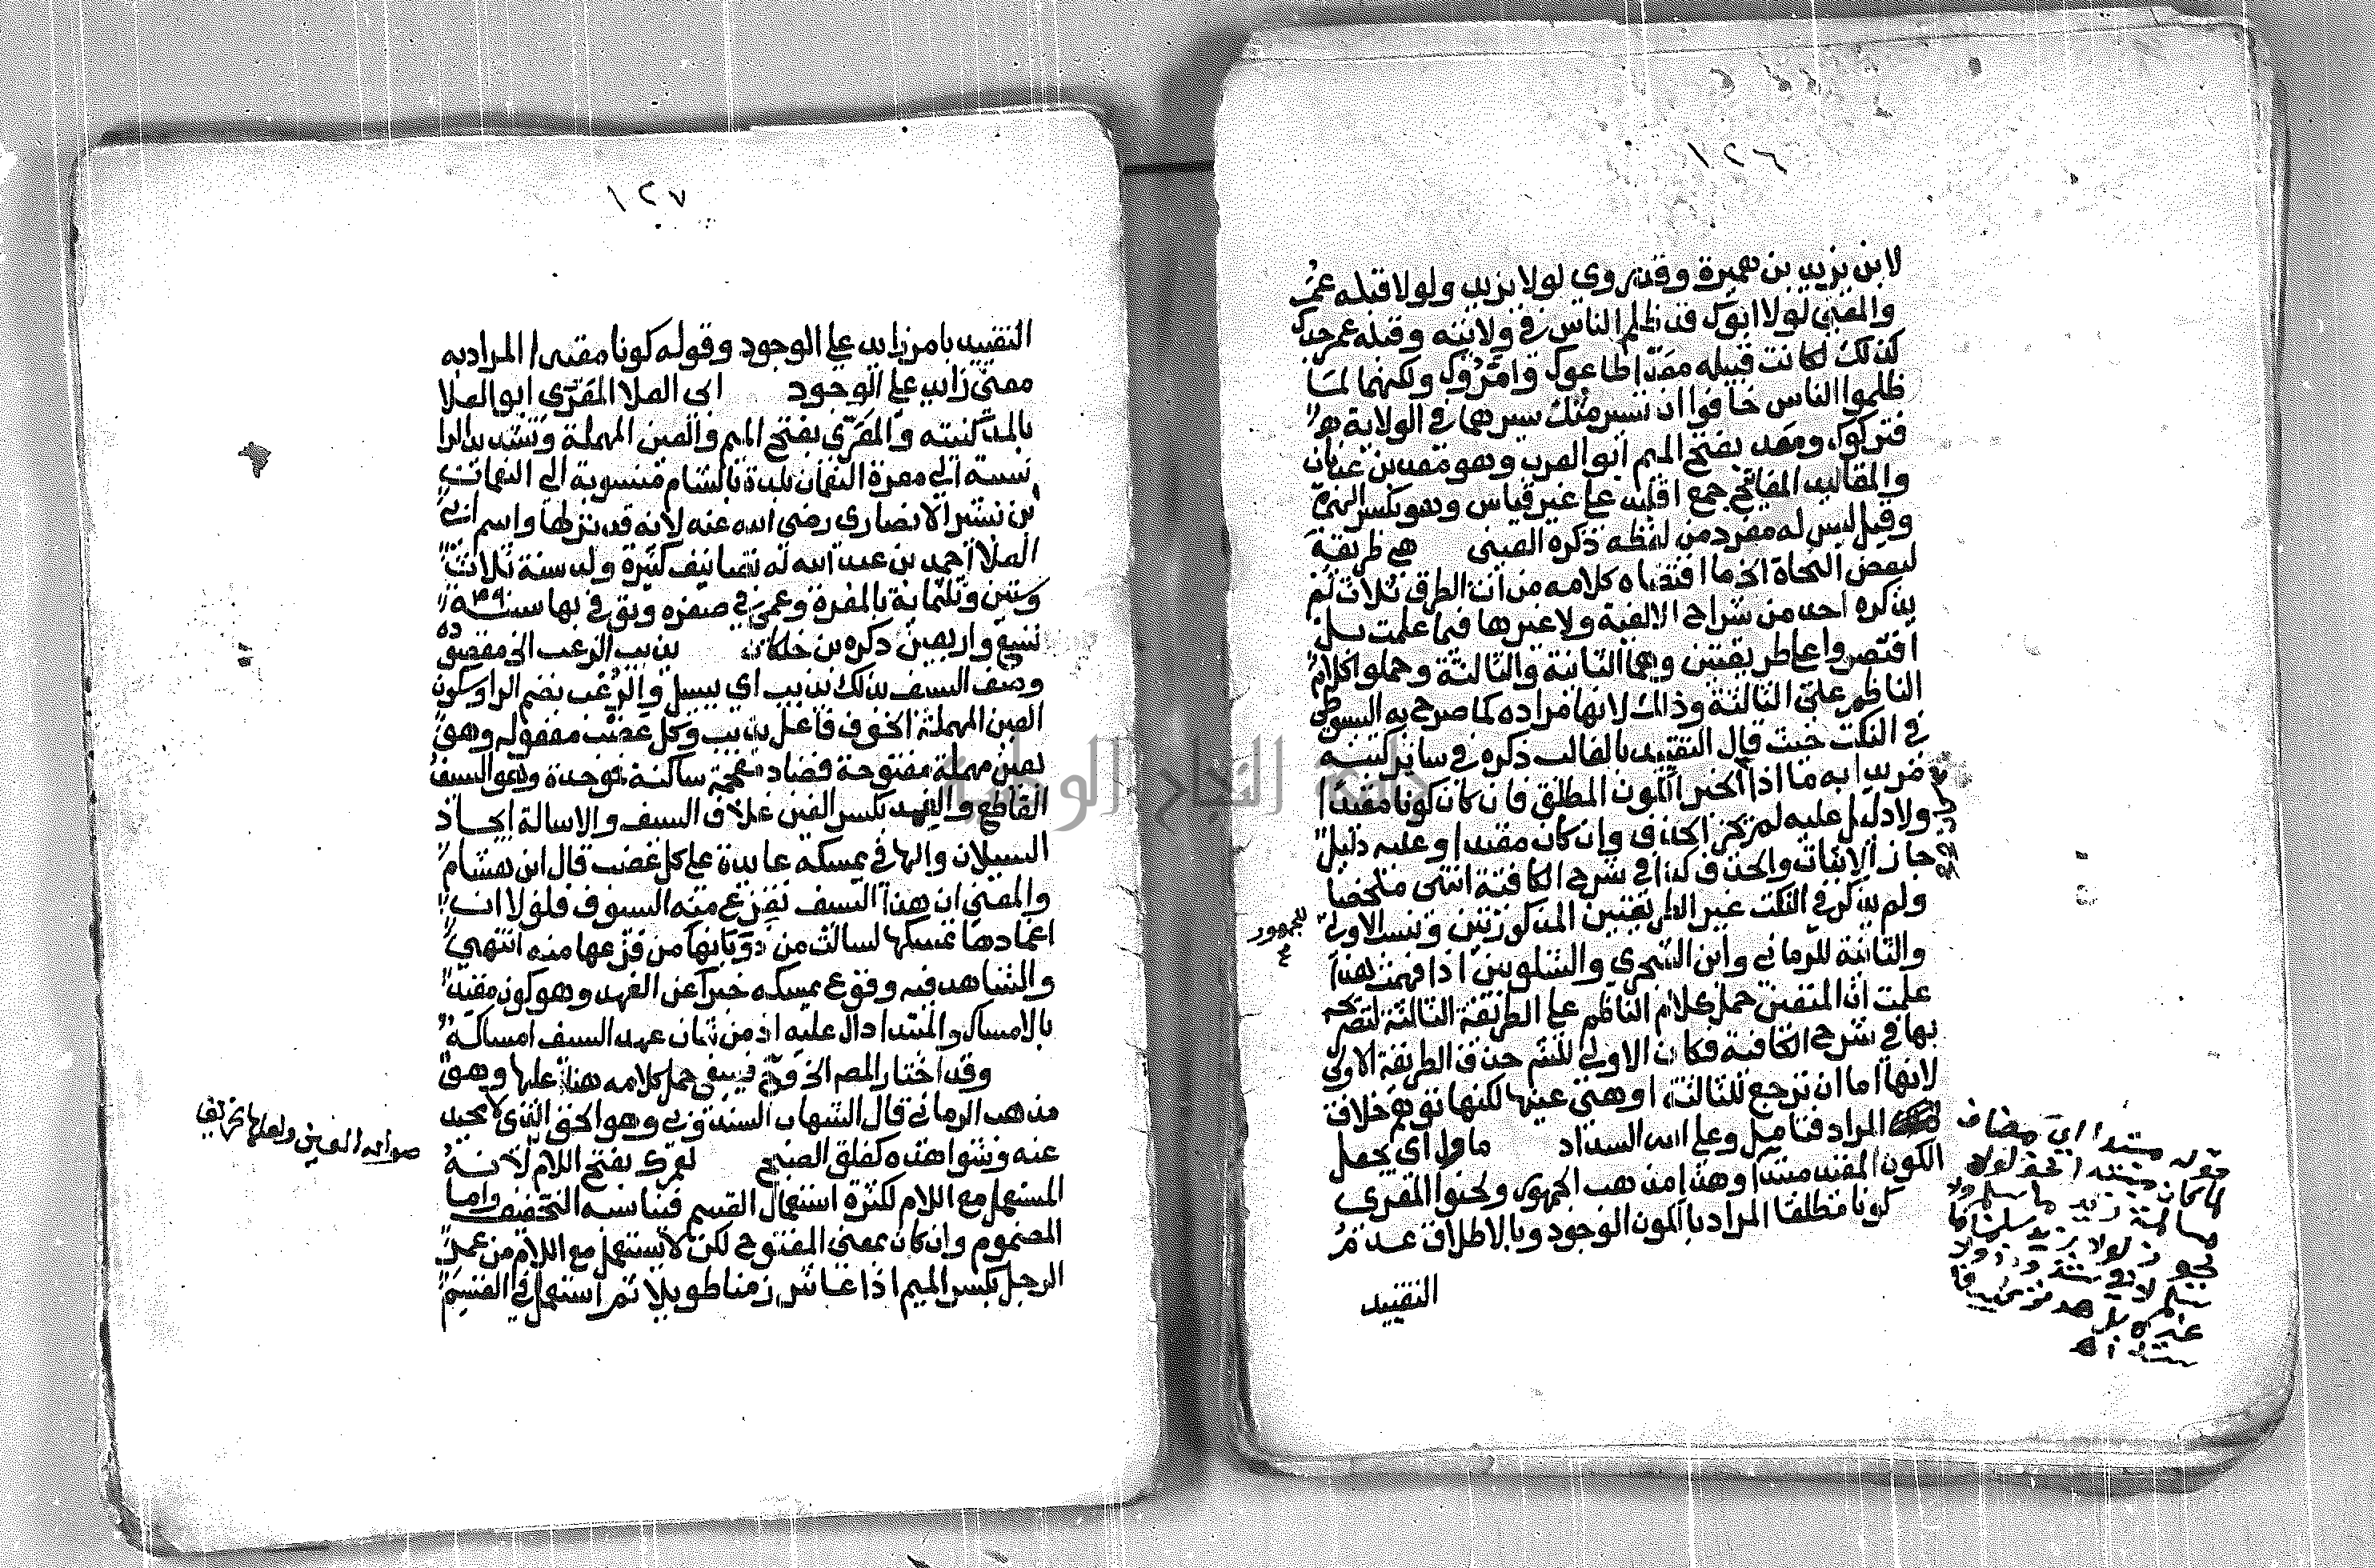 ١٢٦
لابن يزيد بن هبيرة وقد روي لولا يزيد ولولا قبله عمر
والمعنى لولا ابوك قد ظلم الناس في ولايته وقبله عمر جدك
كذلك لكانت قبيله معدّ اطاعوك وامّروك ولكنهما لمّا
ظلموا الناس خافوا ان تسير مثل سيرهما في الولاية
فتركوك ومعد بفتح الميم ابو العرب وهو معد بن عدنان
والمقاليد المفاتيح جمع اقليد على غير قياس وهو بكسر الهمزة
وقيل ليس له مفرد من لفظه ذكره العيني هي طريقة
لبعض النحاة الخ ما اقتضاه كلامه من ان الطرق ثلاث لم
يذكره احد من شراح الالفية ولا غيرها فيما علمت بل
اقتصروا على طريقتين وهما الثانية والثالثة وحملوا كلام
الناظم على الثالثة وذلك لانها مراده كما صرح به السيوطي
في النكت حيث قال التقييد بالغالب ذكره في ساير كتبه
مريدا به ما اذا الخبر الكون المطلق فان كان كونا مقيدا
ولا دليل عليه لم يجز الحذف وان كان مقيدا وعليه دليل
جاز الاثبات والحذف كذا في شرح الكافية انتهى ملخصا
ولم يذكر في النكت غير الطريقتين المذكورتين ونسب الاولى
للجمهور
والثانية للرماني وابن الشجري والشلوبين اذا فهمت هذا
علمت ان المتعين حمل كلام الناظم على الطريقة الثالثة لتصريحه
بها في شرح الكافية فكان الاولى للش حذف الطريقة الاولى
لانها اما ان ترجع للثالثة او هي عينها لكنها توهم خلاف
المراد فتامل وعلى الله السداد ماول اي يجعل
الكون المقيد مبتدا وهذا مذهب الجمهور ولحنوا المعرى
كونا مطلقا المراد بالكون الوجود وبالاطلاق عدم
التقييد
قوله مبتدا اي مضاف
١٢٧
التقييد بامر زايد على الوجود وقوله كونا مقيدا المراد به
معنى زايد على الوجود ابى العلا المعَرّى ابو العلا
بالمد كنيته والمعَرّى بفتح الميم والعين المهملة وتشديد الرا
نسبة الى معرة النعمان بلدة بالشام منسوبة الى النعمان
بن بشير الانصارى رضى الله عنه لانه قد نزلها واسم ابى
العلا احمد بن عبد الله له تصانيف كثيرة ولد سنة ثلاث
وستين وثلثماية بالمعرة وعمى في صغره وتوفي بها سنة
تسع واربعين ذكره بن خلكان يذيب الرعب الخ مقصوده
وصف السيف بذلك يذيب اي يسيل والرعب بضم الرا وسكون
العين المهملة الخوف فاعل يذيب وكل عضب مفعوله وهو
بعين مهملة مفتوحة فضاد معجمة ساكنة فموحدة وهو السيف
القاطع والغمد بكسر الغين غلاف السيف والاسالة ايجاد
السيلان والها في يمسكه عايدة على كل عضب قال ابن هشام
والمعنى ان هذا السيف تفزع منه السيوف فلولا ان
اغمادها تمسكها لسالت من ذوبانها من فزعها منه انتهى
والشاهد فيه وقوع يمسكه خبرا عن الغمد وهو كون مقيد
بالامساك والمبتدا دال عليه اذ من شان غمد السيف امساكه
وقد اختار المصم الخ فينبغي حمل كلامه هنا عليها وهو
مذهب الرماني قال الشهاب السندوبي وهو الحق الذي لا محيد
عنه وشواهده كفلق الصبح لعمرك بفتح اللام لانه
صوابه العين ولعلها تحريف
المستعمل مع اللام لكثرة استعمال القسم فناسبه التخفيف واما
المضموم وان كان بمعنى المفتوح لكن لا يستعمل مع اللام من عمر
الرجل بكسر الميم اذا عاش زمنا طويلا ثم استعمل في القسم